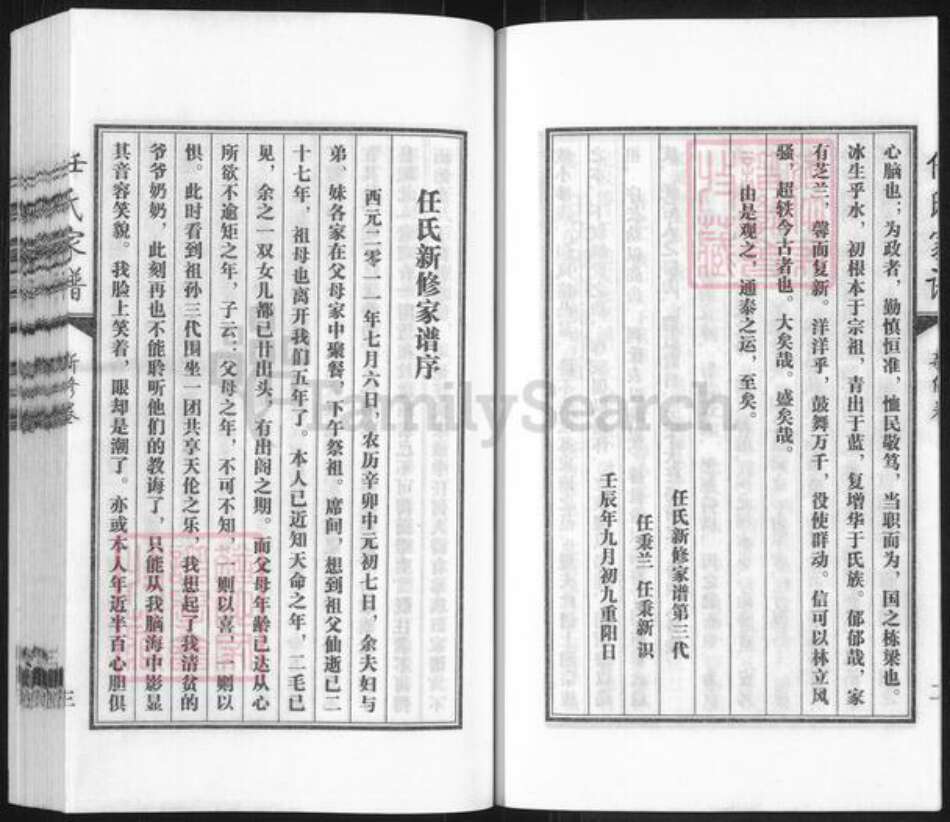 心脑也；为政者，勤慎恒准，恤民敬笃，当职而为，国之栋梁也。
冰生乎水，初根本于宗祖，青出于蓝，复增华于氏族。郁郁哉，家
有芝兰，馨而复新。洋洋乎，鼓舞万千，役使群动。信可以林立风
骚，超轶今古者也。大矣哉。盛矣哉。
由是观之，通泰之运，至矣。
任氏新修家谱第三代
任秉兰 任秉新 识
壬辰年九月初九重阳日
任氏新修家谱序
西元二零一一年七月六日，农历辛卯中元初七日，余夫妇与
弟、妹各家在父母家中聚餐，下午祭祖。席间，想到祖父仙逝已二
十七年，祖母也离开我们五年了。本人已近知天命之年，二毛已
见，余之一双女儿都已廿出头，有出阁之期。而父母年龄已达从心
所欲不逾矩之年，子云：父母之年，不可不知，一则以喜，一则以
惧。此时看到祖孙三代围坐一团共享天伦之乐，我想起了我清贫的
爷爷奶奶，此刻再也不能聆听他们的教诲了，只能从我脑海中影显
其音容笑貌。我脸上笑着，眼却是潮了。亦或本人年近半百心胆俱
任氏家谱
新修卷
三
FamilySearch